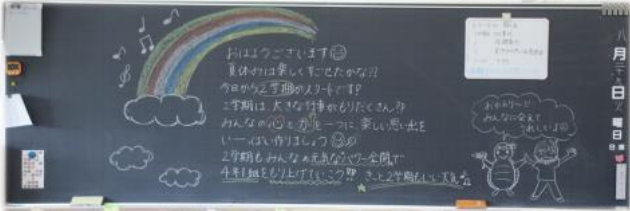 おはようございます
夏休みは楽しくすごせたかな??
今日から2学期のスタートです!!
2学期は、大きな行事がもりだくさん!!
みんなの心と力を一つに、楽しい思い出を
い〜っぱい作りましょう
2学期もみんなの元気なパワー全開で
4年1組をもり上げていこう!! きっと2学期もいい天気
みんなに会えて
うれしいよ
八
月
日
曜日
日直